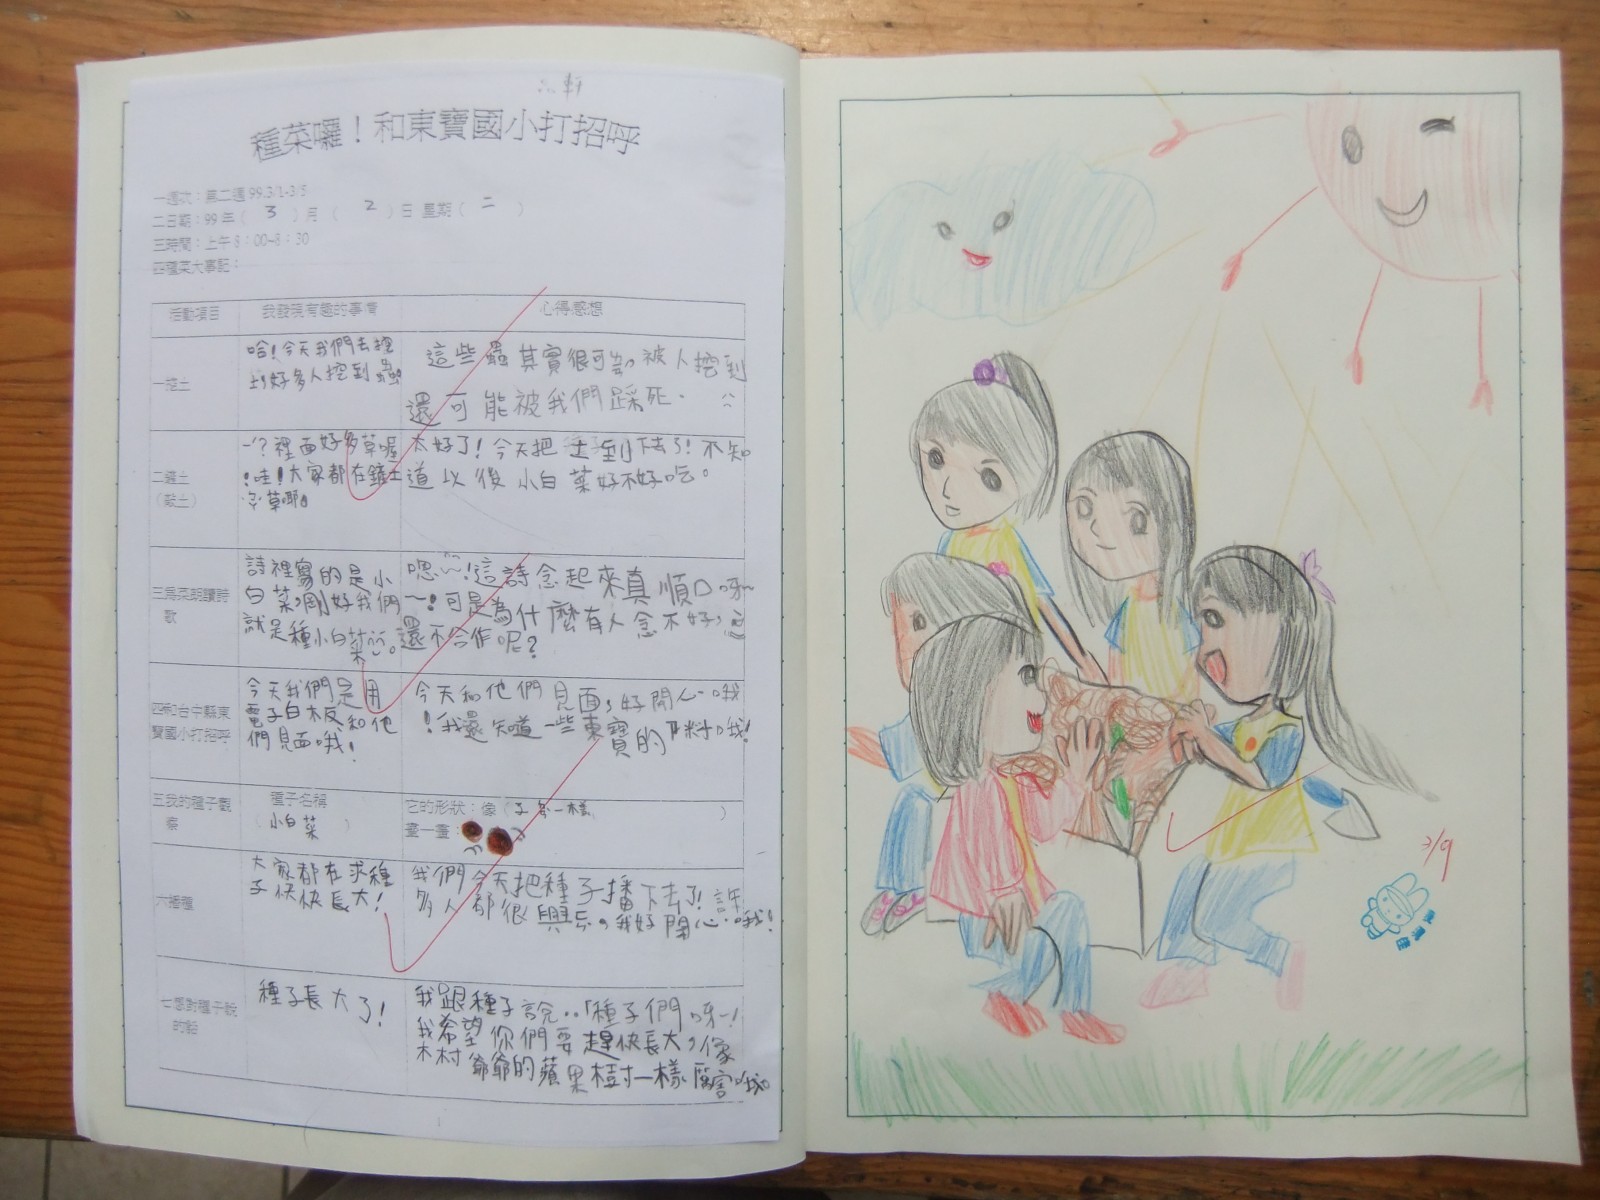 軒
種菜囉！和東寶國小打招呼
一週次：第二週 99.3/1-3/5
二日期：99年（3）月（2）日 星期（二）
三時間：上午8：00~8：30
四種菜大事記：
活動項目 我發現有趣的事情 心得感想
一挖土
哈！今天我們去挖
土，好多人挖到蟲
這些蟲其實很可
被人挖到
還可能被我們踩死.
二鏟土
（鬆土）
一？裡面好多草喔
！哇！大家都在鏟土
草耶。
太好了！今天把土倒下去了！不知
道以後小白菜好不好吃。
三是菜朗讀詩
歌
詩裡寫的是小
白菜，剛好我們
就是種小白菜。
嗯~！這詩念起來真順口呀~
~！可是為什麼有人念不好，
還不合作呢？
四和台中縣東
寶國小打招呼
今天我們是用
電子白板和他
們見面哦！
今天和他們見面，好開心哦
！我還知道一些東寶的
哦！
五我的種子觀
察
種子名稱
（小白菜）
它的形狀：像（子
一樣）
畫一畫
六播種
大家都在求種
子快快長大！
我們今天把種子播下去了！許
多人都很興
，我好開心哦！
七想對種子說
的話
種子長大了！
我跟種子說：「種子們呀~！
我希望你們要趕快長大，像
木村爺爺的蘋果樹一樣厲害哦
3/9